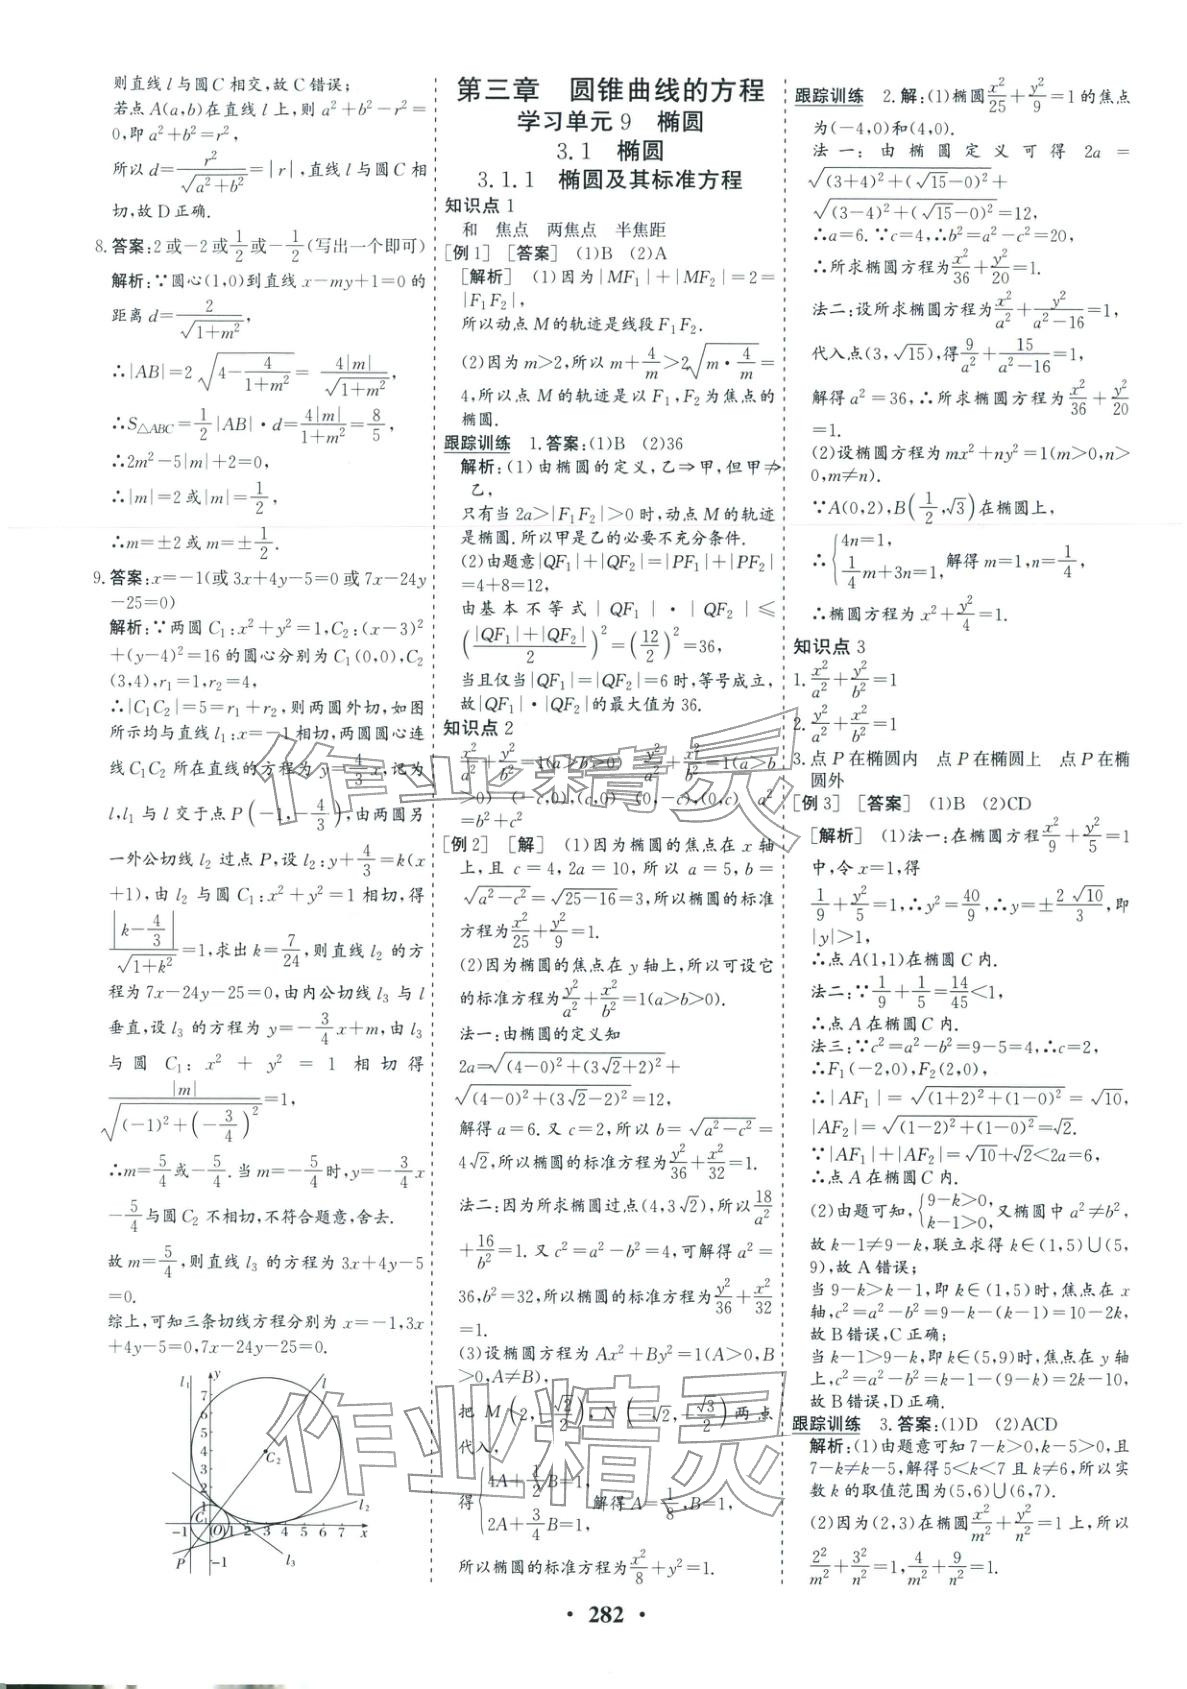 则直线l与圆C相交,故C错误;
若点A(a,b)在直线l上,则a²+b²-r²=
0,即a²+b²=r²,
所以d=r²/√(a²+b²)=|r|,直线l与圆C相
切,故D正确.
8.答案:2或-2或1/2或-1/2(写出一个即可)
解析:∵圆心(1,0)到直线x-my+1=0的
距离d=2/√(1+m²),
∴|AB|=2√(4-4/(1+m²))=4|m|/√(1+m²),
∴S△ABC=1/2|AB|·d=4|m|/(1+m²)=8/5,
∴2m²-5|m|+2=0,
∴|m|=2或|m|=1/2,
∴m=±2或m=±1/2.
9.答案:x=-1(或3x+4y-5=0或7x-24y
-25=0)
解析:∵两圆C₁:x²+y²=1,C₂:(x-3)²
+(y-4)²=16的圆心分别为C₁(0,0),C₂
(3,4),r₁=1,r₂=4,
∴|C₁C₂|=5=r₁+r₂,则两圆外切,如图
所示均与直线l₁:x=-1相切,两圆圆心连
线C₁C₂所在直线的方程为y=4/3x,记为
l,l₁与l交于点P(-1,-4/3),由两圆另
一外公切线l₂过点P,设l₂:y+4/3=k(x
+1),由l₂与圆C₁:x²+y²=1相切,得
|k-4/3|/√(1+k²)=1,求出k=7/24,则直线l₂的方
程为7x-24y-25=0,由内公切线l₃与l
垂直,设l₃的方程为y=-3/4x+m,由l₃
与圆C₁:x²+y²=1相切得
|m|/√((-1)²+(-3/4)²)=1,
∴m=5/4或-5/4.当m=-5/4时,y=-3/4x
-5/4与圆C₂不相切,不符合题意,舍去.
故m=5/4,则直线l₃的方程为3x+4y-5
=0.
综上,可知三条切线方程分别为x=-1,3x
+4y-5=0,7x-24y-25=0.
l₁ y l
7
6
5
4
3
2
1
C₂
C₁
l₂
-1 O 1 2 3 4 5 6 7 x
P -1 l₃
第三章 圆锥曲线的方程
学习单元9 椭圆
3.1 椭圆
3.1.1 椭圆及其标准方程
知识点1
和 焦点 两焦点 半焦距
[例1] [答案] (1)B (2)A
[解析] (1)因为|MF₁|+|MF₂|=2=
|F₁F₂|,
所以动点M的轨迹是线段F₁F₂.
(2)因为m>2,所以m+4/m>2√(m·4/m)=
4,所以点M的轨迹是以F₁,F₂为焦点的
椭圆.
跟踪训练 1.答案:(1)B (2)36
解析:(1)由椭圆的定义,乙⇒甲,但甲⇏
乙,
只有当2a>|F₁F₂|>0时,动点M的轨迹
是椭圆.所以甲是乙的必要不充分条件.
(2)由题意|QF₁|+|QF₂|=|PF₁|+|PF₂|
=4+8=12,
由基本不等式|QF₁|·|QF₂|≤
((|QF₁|+|QF₂|)/2)²=(12/2)²=36,
当且仅当|QF₁|=|QF₂|=6时,等号成立,
故|QF₁|·|QF₂|的最大值为36.
知识点2
x²/a²+y²/b²=1(a>b>0) y²/a²+x²/b²=1(a>b
>0) (-c,0),(c,0) (0,-c),(0,c) a²
=b²+c²
[例2] [解] (1)因为椭圆的焦点在x轴
上,且c=4,2a=10,所以a=5,b=
√(a²-c²)=√(25-16)=3,所以椭圆的标准
方程为x²/25+y²/9=1.
(2)因为椭圆的焦点在y轴上,所以可设它
的标准方程为y²/a²+x²/b²=1(a>b>0).
法一:由椭圆的定义知
2a=√((4-0)²+(3√2+2)²)+
√((4-0)²+(3√2-2)²)=12,
解得a=6.又c=2,所以b=√(a²-c²)=
4√2,所以椭圆的标准方程为y²/36+x²/32=1.
法二:因为所求椭圆过点(4,3√2),所以18/a²
+16/b²=1.又c²=a²-b²=4,可解得a²=
36,b²=32,所以椭圆的标准方程为y²/36+x²/32
=1.
(3)设椭圆方程为Ax²+By²=1(A>0,B
>0,A≠B),
把M(2,-√2/2),N(-√2,-√3/2)两点
代入,
得{4A+1/2B=1, 2A+3/4B=1, 解得A=1/8,B=1,
所以椭圆的标准方程为x²/8+y²=1.
跟踪训练 2.解:(1)椭圆x²/25+y²/9=1的焦点
为(-4,0)和(4,0).
法一:由椭圆定义可得2a=
√((3+4)²+(√15-0)²)+
√((3-4)²+(√15-0)²)=12,
∴a=6.∵c=4,∴b²=a²-c²=20,
∴所求椭圆方程为x²/36+y²/20=1.
法二:设所求椭圆方程为x²/a²+y²/(a²-16)=1,
代入点(3,√15),得9/a²+15/(a²-16)=1,
解得a²=36,∴所求椭圆方程为x²/36+y²/20
=1.
(2)设椭圆方程为mx²+ny²=1(m>0,n>
0,m≠n).
∵A(0,2),B(1/2,√3)在椭圆上,
∴{4n=1, 1/4m+3n=1, 解得m=1,n=1/4,
∴椭圆方程为x²+y²/4=1.
知识点3
1.x²/a²+y²/b²=1
2.y²/a²+x²/b²=1
3.点P在椭圆内 点P在椭圆上 点P在椭
圆外
[例3] [答案] (1)B (2)CD
[解析] (1)法一:在椭圆方程x²/9+y²/5=1
中,令x=1,得
1/9+y²/5=1,∴y²=40/9,∴y=±2√10/3,即
|y|>1,
∴点A(1,1)在椭圆C内.
法二:∵1/9+1/5=14/45<1,
∴点A在椭圆C内.
法三:∵c²=a²-b²=9-5=4,∴c=2,
∴F₁(-2,0),F₂(2,0),
∴|AF₁|=√((1+2)²+(1-0)²)=√10,
|AF₂|=√((1-2)²+(1-0)²)=√2.
∵|AF₁|+|AF₂|=√10+√2<2a=6,
∴点A在椭圆C内.
(2)由题可知,{9-k>0, k-1>0, 又椭圆中a²≠b²,
故k-1≠9-k,联立求得k∈(1,5)∪(5,
9),故A错误;
当9-k>k-1,即k∈(1,5)时,焦点在x
轴,c²=a²-b²=9-k-(k-1)=10-2k,
故B错误,C正确;
当k-1>9-k,即k∈(5,9)时,焦点在y轴
上,c²=a²-b²=k-1-(9-k)=2k-10,
故B错误,D正确.
跟踪训练 3.答案:(1)D (2)ACD
解析:(1)由题意可知7-k>0,k-5>0,且
7-k≠k-5,解得5<k<7且k≠6,所以实
数k的取值范围为(5,6)∪(6,7).
(2)因为(2,3)在椭圆x²/m²+y²/n²=1上,所以
2²/m²+3²/n²=1,4/m²+9/n²=1.
· 282 ·
作业精灵
作业精灵